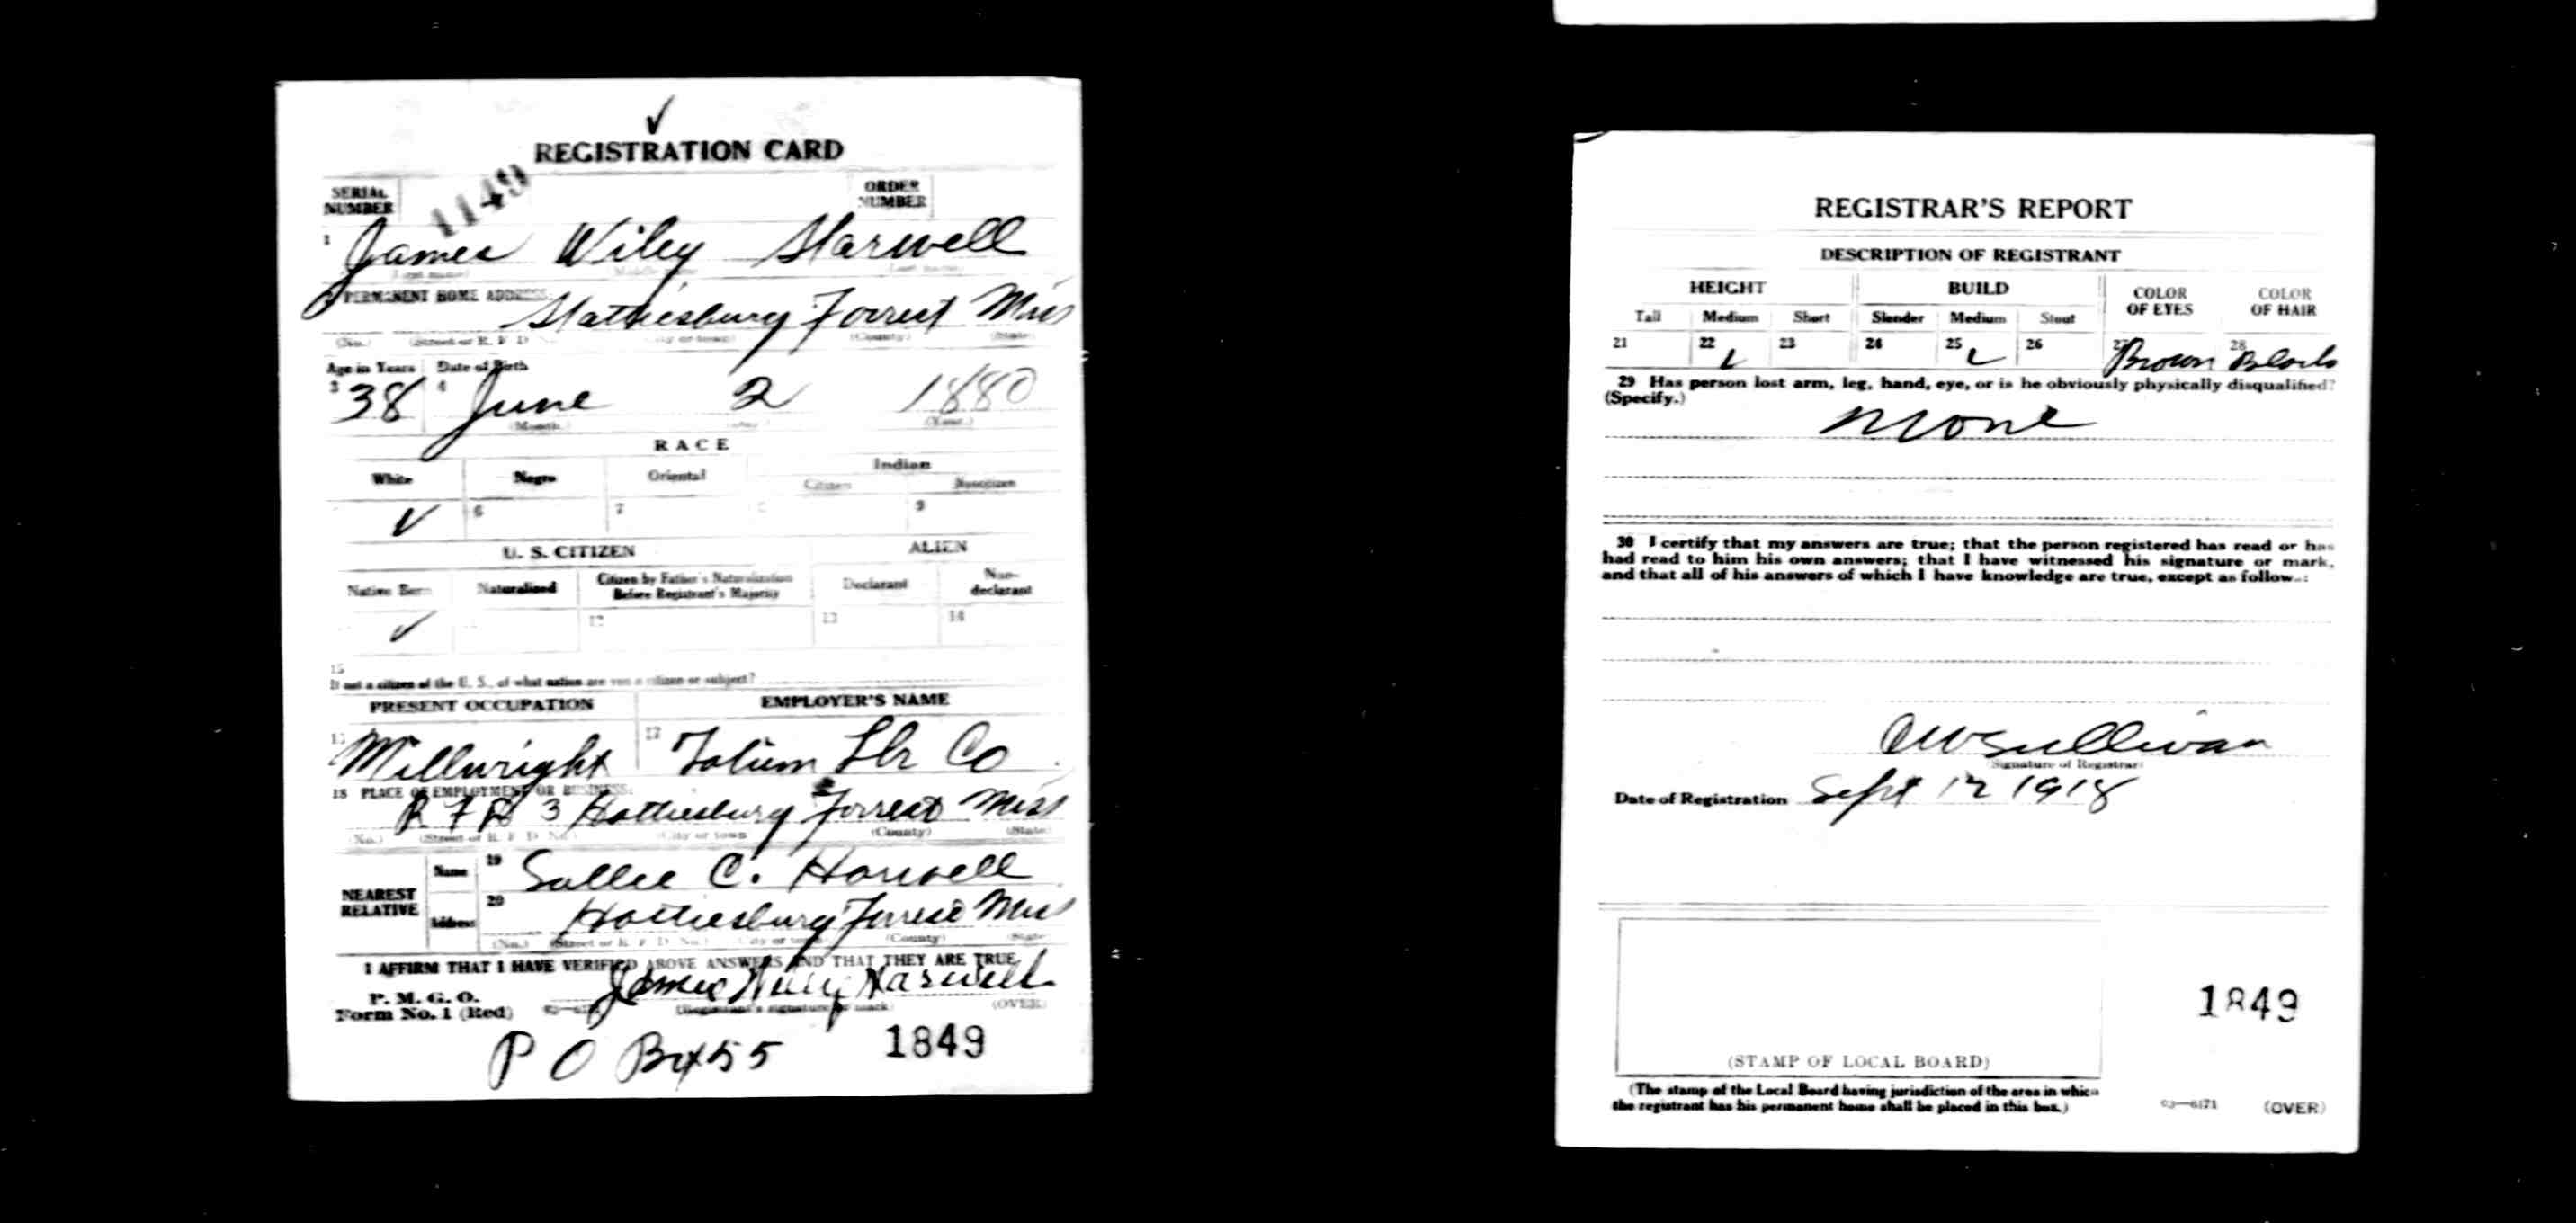 REGISTRATION CARD
SERIAL NUMBER 1149 ORDER NUMBER
1 James Wiley Harwell
(First name) (Middle name) (Last name)
2 PERMANENT HOME ADDRESS:
Hattiesburg Forrest Miss
(No.) (Street or R. F. D. No.) (City or town) (County) (State)
Age in Years Date of Birth
3 38 4 June 2 1880
(Month.) (Day.) (Year.)
RACE
White Negro Oriental Indian
Citizen Noncitizen
✓ 6 7 9
U. S. CITIZEN ALIEN
Native Born Naturalized Citizen by Father's Naturalization Before Registrant's Majority Declarant Non-declarant
✓ 12 13 14
15
If not a citizen of the U. S., of what nation are you a citizen or subject?
PRESENT OCCUPATION EMPLOYER'S NAME
Millwright 17 Tatum Lbr Co
18 PLACE OF EMPLOYMENT OR BUSINESS:
R F D 3 Hattiesburg Forrest Miss
(No.) (Street or R. F. D. No.) (City or town) (County) (State)
NEAREST RELATIVE
Name 19 Sallie C. Harwell
Address 20 Hattiesburg Forrest Miss
(No.) (Street or R. F. D. No.) (City or town) (County) (State)
I AFFIRM THAT I HAVE VERIFIED ABOVE ANSWERS AND THAT THEY ARE TRUE
P. M. G. O.
Form No. 1 (Red) James Wiley Harwell
(Registrant's signature or mark) (OVER)
P O Bx 55 1849
REGISTRAR'S REPORT
DESCRIPTION OF REGISTRANT
HEIGHT BUILD COLOR OF EYES COLOR OF HAIR
Tall Medium Short Slender Medium Stout
21 22 ✓ 23 24 25 ✓ 26 27 Brown 28 Black
29 Has person lost arm, leg, hand, eye, or is he obviously physically disqualified?
(Specify.)
None
30 I certify that my answers are true; that the person registered has read or has
had read to him his own answers; that I have witnessed his signature or mark,
and that all of his answers of which I have knowledge are true, except as follows:
Sullivan
(Signature of Registrar)
Date of Registration Sept 12 1918
1849
(STAMP OF LOCAL BOARD)
(The stamp of the Local Board having jurisdiction of the area in which
the registrant has his permanent home shall be placed in this box.)
03—6171 (OVER)